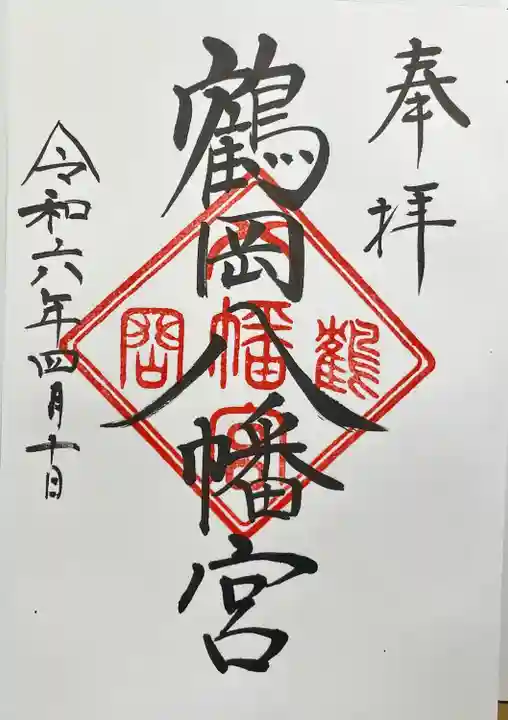 奉拝
鶴岡八幡宮
令和六年四月十日
鶴
八幡宮
岡